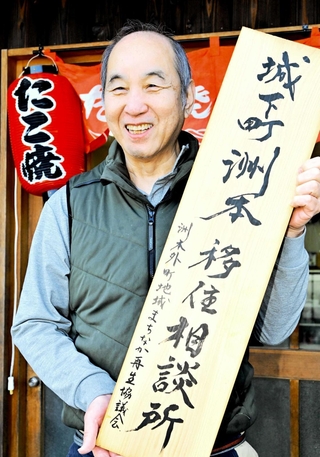 たこ焼
城下町洲本移住相談所
洲本外町地域まちなか再生協議会